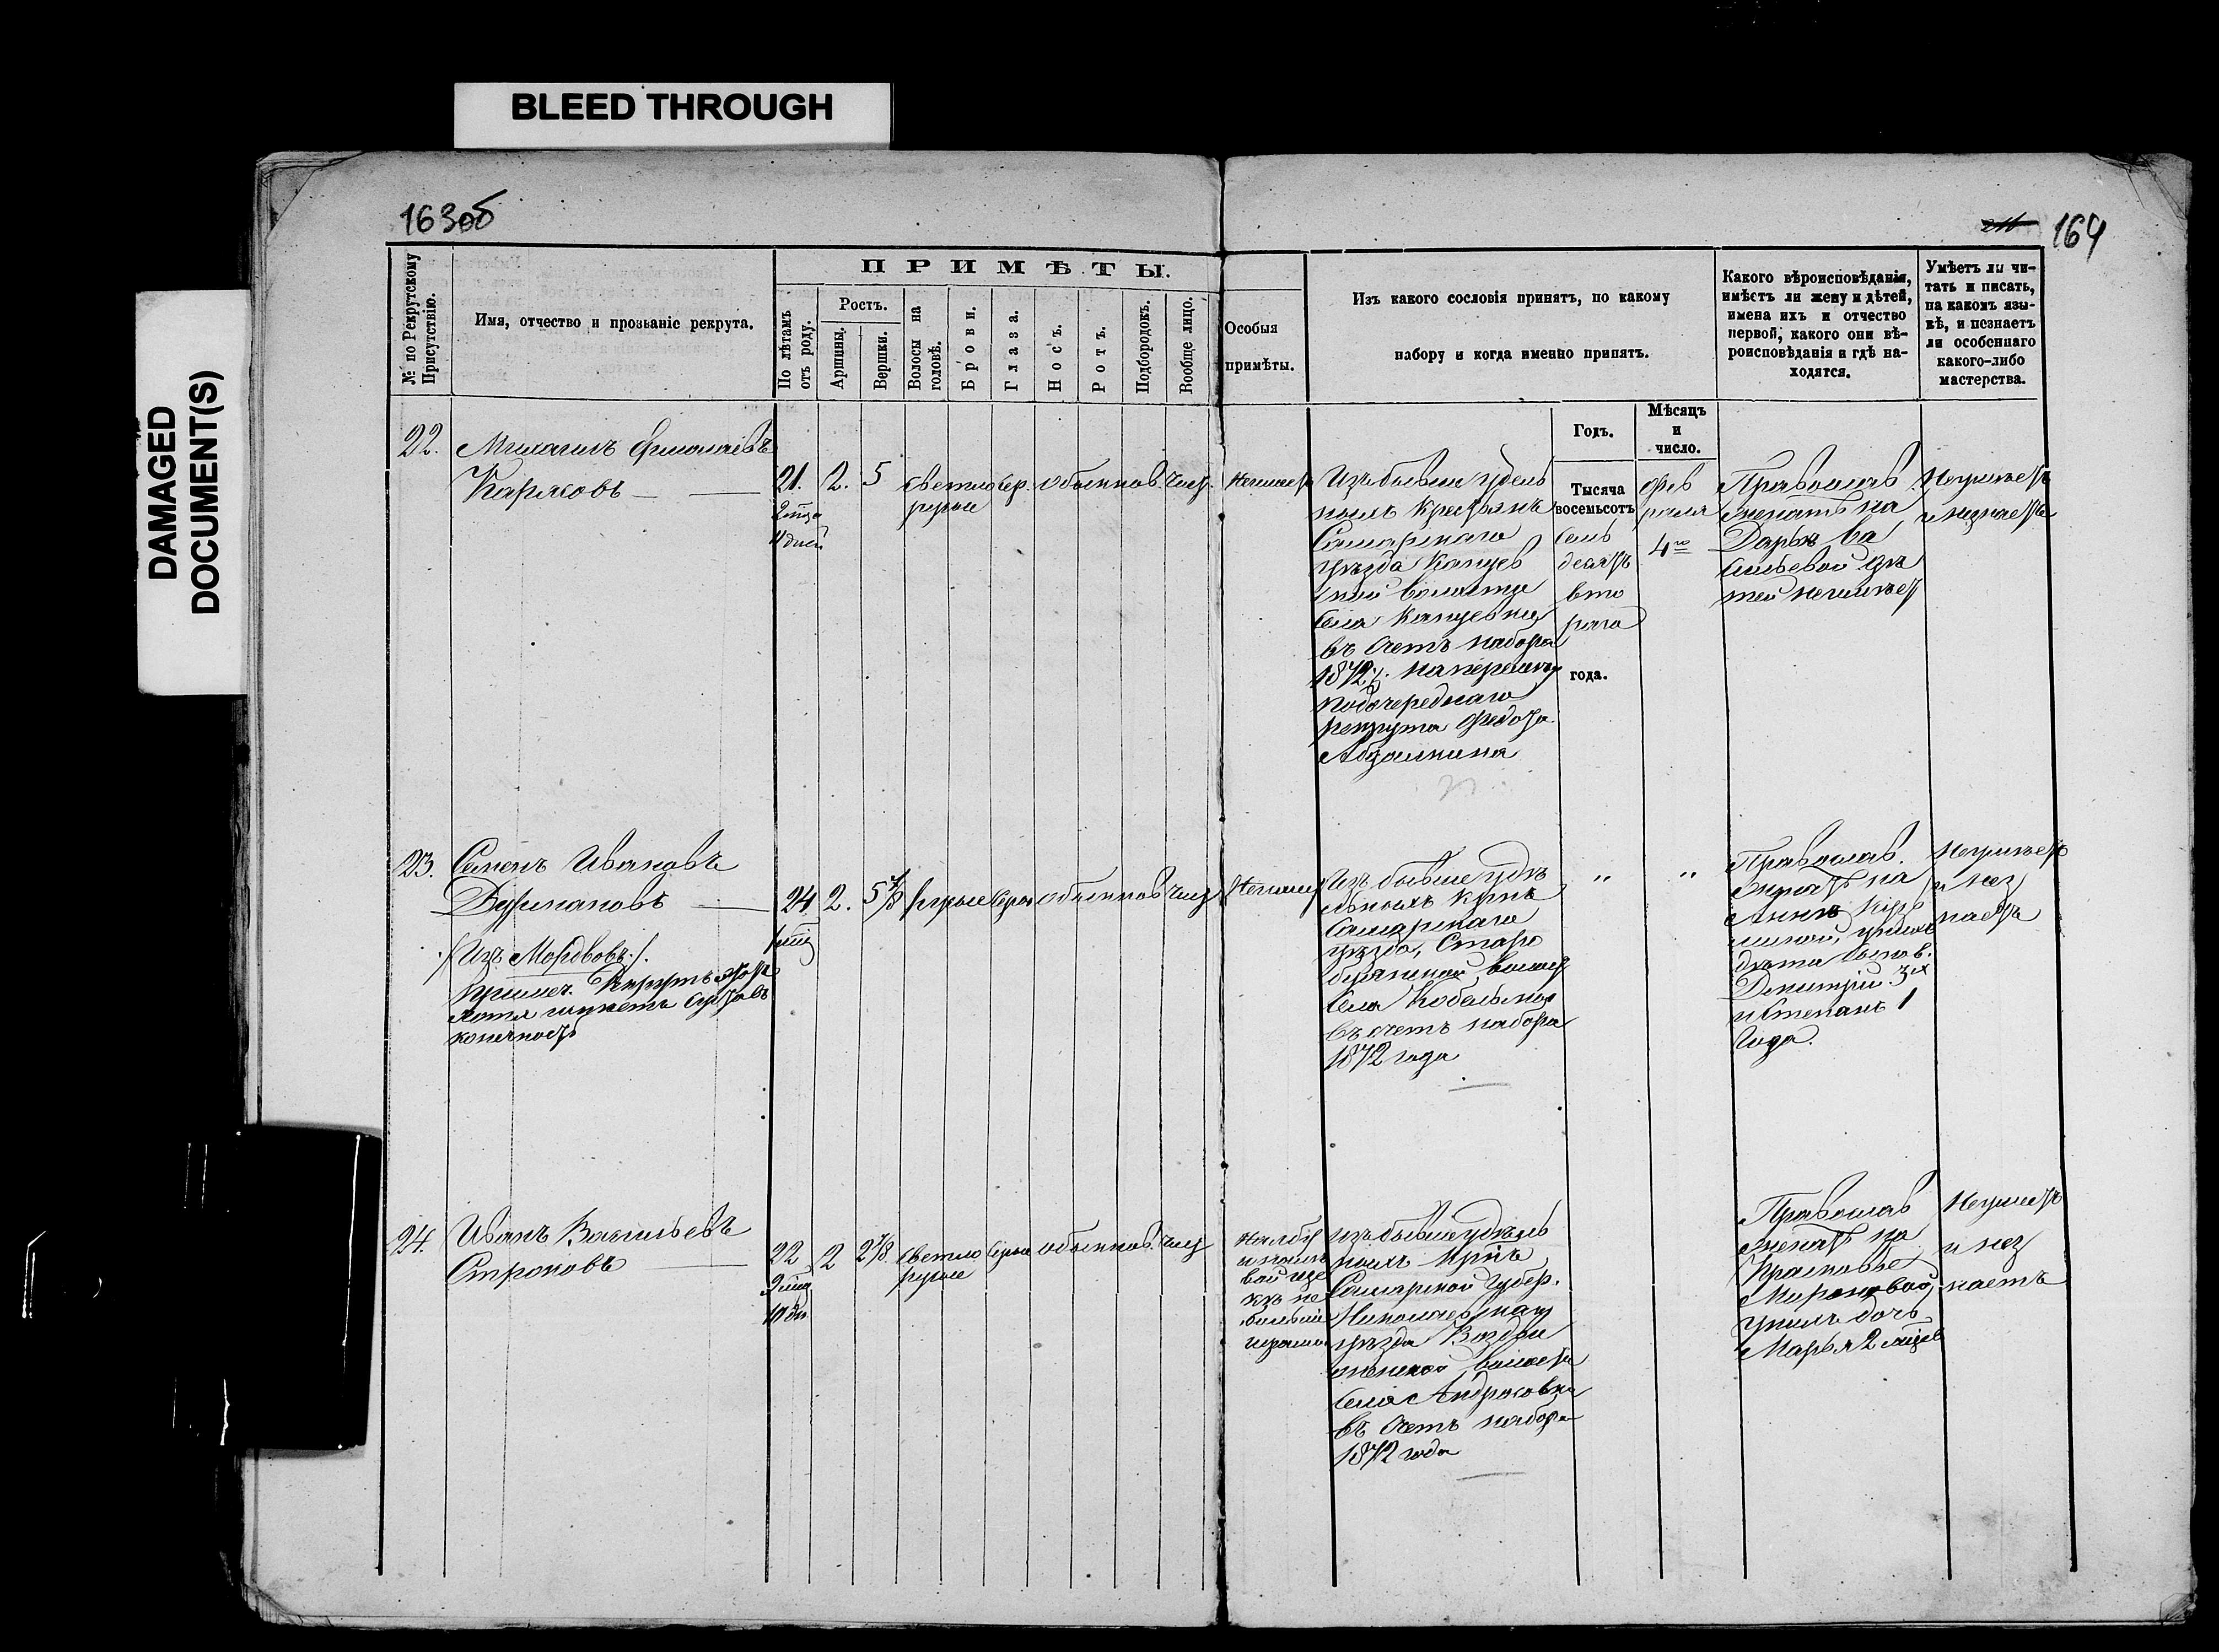 BLEED THROUGH
DAMAGED
DOCUMENT(S)
163об
164
№ по Рекрутскому
Присутствію.
Имя, отчество и прозваніе рекрута.
ПРИМѢТЫ.
По лѣтамъ
отъ роду.
Ростъ.
Аршины.
Вершки.
Волосы на
головѣ.
Брови.
Глаза.
Носъ.
Ротъ.
Подбородокъ.
Вообще лицо.
Особыя
примѣты.
Изъ какого сословія принятъ, по какому
набору и когда именно принятъ.
Какого вѣроисповѣданія,
имѣетъ ли жену и дѣтей,
имена ихъ и отчество
первой, какого они вѣ-
роисповѣданія и гдѣ на-
ходятся.
Умѣетъ ли чи-
тать и писать,
на какомъ язы-
кѣ, и незнаетъ
ли особеннаго
какого-либо
мастерства.
Годъ.
Мѣсяцъ
и
число.
22.
Михаилъ Ермолаевъ
Каряковъ
21.
2 мца
11 дней
2.
5
светло
русые
сер.
обыкнов.
чис.
Неимеетъ
Изъ бывши удель
ныхъ крестьянъ
Самарскаго
уѣзда Кануев
ской волости
села Кануевки
въ счетъ набора
1872 г.
подочереднаго
рекрута Федота
Тысяча
восемьсотъ
семь
десятъ
вто
раго
года.
фев
раля
4го
Православ.
женатъ на
Дарьѣ Ва
сильевой дѣ
тей неимѣетъ
Неумѣетъ
и незнаетъ
23.
Семенъ Ивановъ
/Изъ Мордвовъ./
24
2.
5 1/8
русые
серые
обыкнов.
чис
Неимеетъ
Изъ бывше удѣ
льныхъ крнъ
Самарскаго
уѣзда, Старо
буянской волост
села Кобельма
въ счетъ набора
1872 года
"
"
Православ.
женатъ на
Аннѣ
дѣти сынов.
Дмитрій 3х
и Степанъ 1
года.
Неумѣетъ
и нез
наетъ
24.
Иванъ Васильевъ
Строковъ
22
10 дн
2
2 7/8
светло
русые
серые
обыкнов.
чис
На лбу
и на лѣ
вой ще
кѣ не
большіе
шрамы
изъ бывше удѣль
ныхъ крнъ
Самарской губер.
Николаевскаго
уѣзда Воздви
женской волости
села Андросовки
въ счетъ набора
1872 года
Православ
женатъ на
Прасковье
Мироновой,
у нихъ дочь
Марья 2 мцев
Неумеетъ
и нез
наетъ